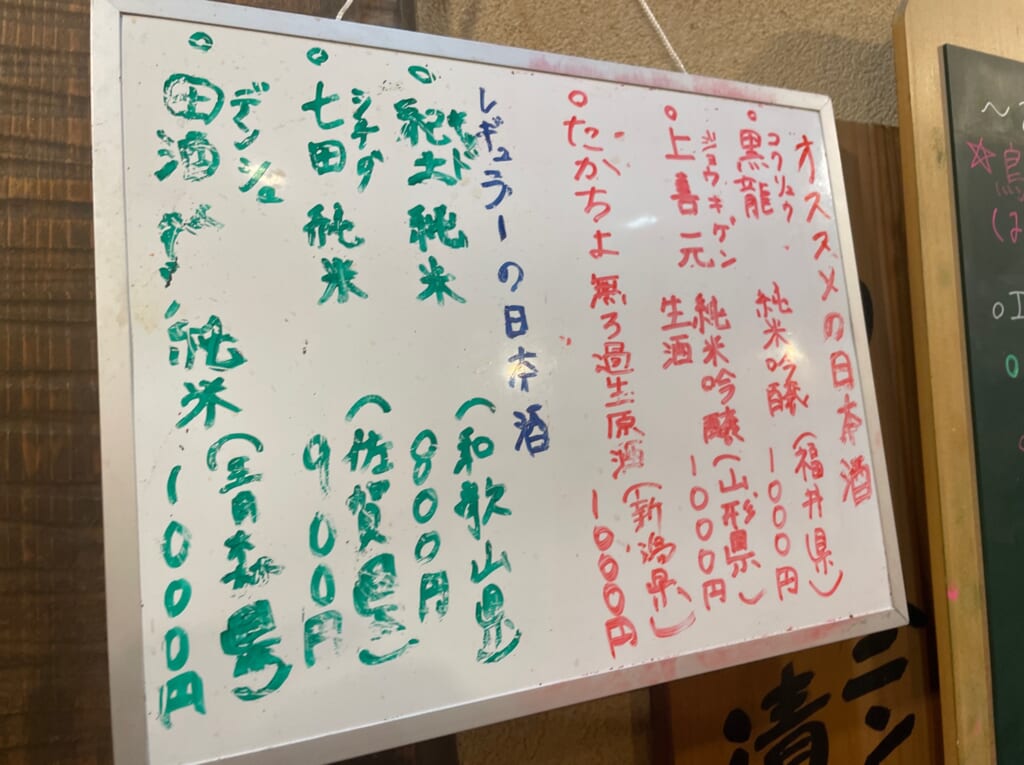 オススメの日本酒
コクリュウ
黒龍 純米吟醸 (福井県)
1000円
ジョウキゲン
上喜元 純米吟醸 (山形県)
生酒 1000円
たかちよ 無ろ過生原酒 (新潟県)
1000円
レギュラーの日本酒
キッド
紀土 純米 (和歌山県)
800円
シチダ
七田 純米 (佐賀県)
900円
デンシュ
田酒 純米 (青森
1000円
漬